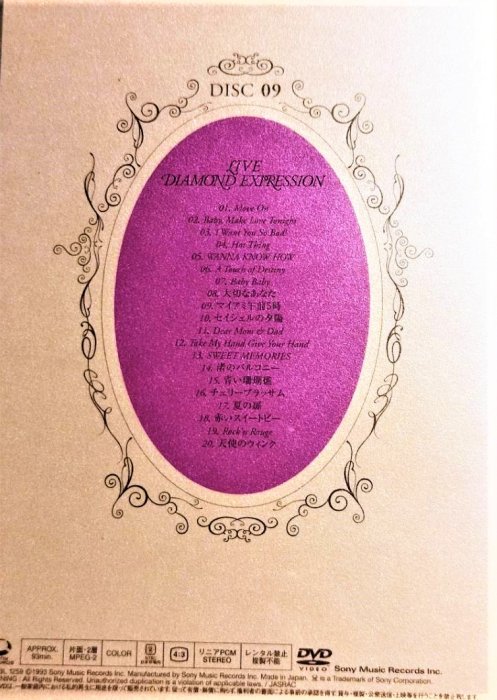 DISC 09
LIVE
DIAMOND EXPRESSION
01. Move On
02. Baby, Make Love Tonight
03. I Want You So Bad!
04. Hot Thing
05. WANNA KNOW HOW
06. A Touch of Destiny
07. Baby Baby
08. 大切なあなた
09. マイアミ午前5時
10. セイシェルの夕陽
11. Dear Mom & Dad
12. Take My Hand, Give Your Hand
13. SWEET MEMORIES
14. 渚のバルコニー
15. 青い珊瑚礁
16. チェリーブラッサム
17. 夏の扉
18. 赤いスイートピー
19. Rock'n Rouge
20. 天使のウィンク
APPROX. 93min.
片面・2層 MPEG-2
COLOR
4:3
リニアPCM STEREO
レンタル禁止 複製不能
DVD VIDEO
Sony Music Records Inc.
1259 ©1993 Sony Music Records Inc. Manufactured by Sony Music Records Inc. Made in Japan. is a Trademark of Sony Corporation.
: All Rights Reserved. Unauthorized duplication is a violation of applicable laws. / JASRAC